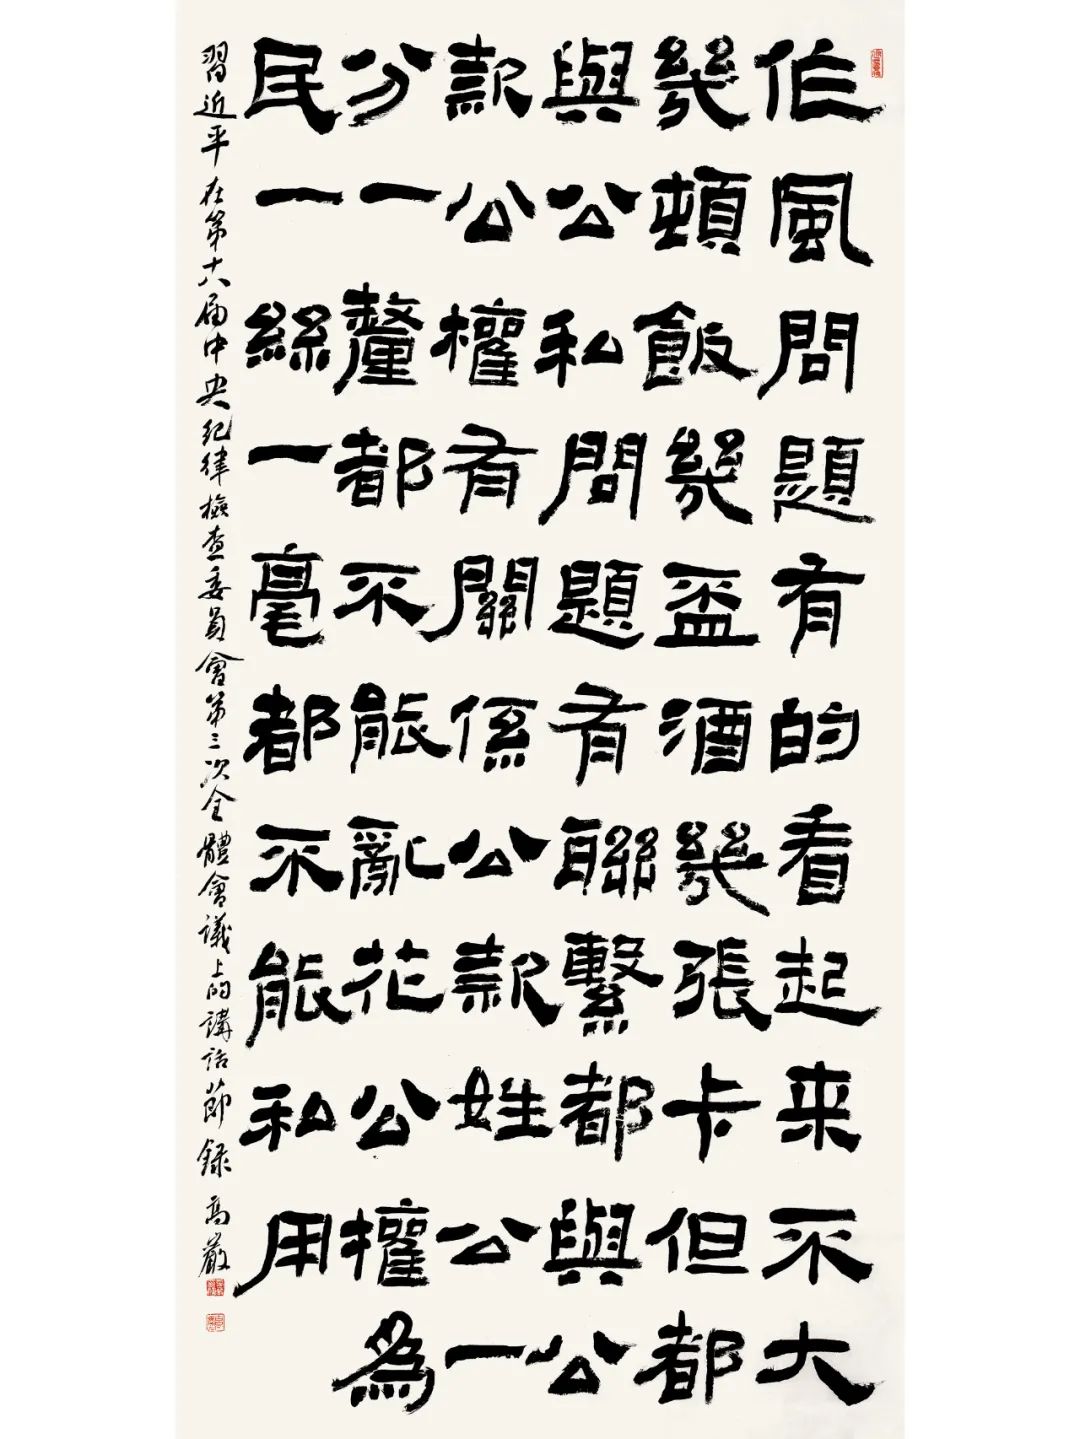 作風問題有的看起来不大
幾頓飯幾盃酒幾張卡但都
與公私問題有聯繫都與公
款公權有關係公款姓公一
分一釐都不能亂花公權為
民一絲一毫都不能私用
習近平在第十八届中央紀律檢查委員會第三次全體會議上的講話節録 高巖